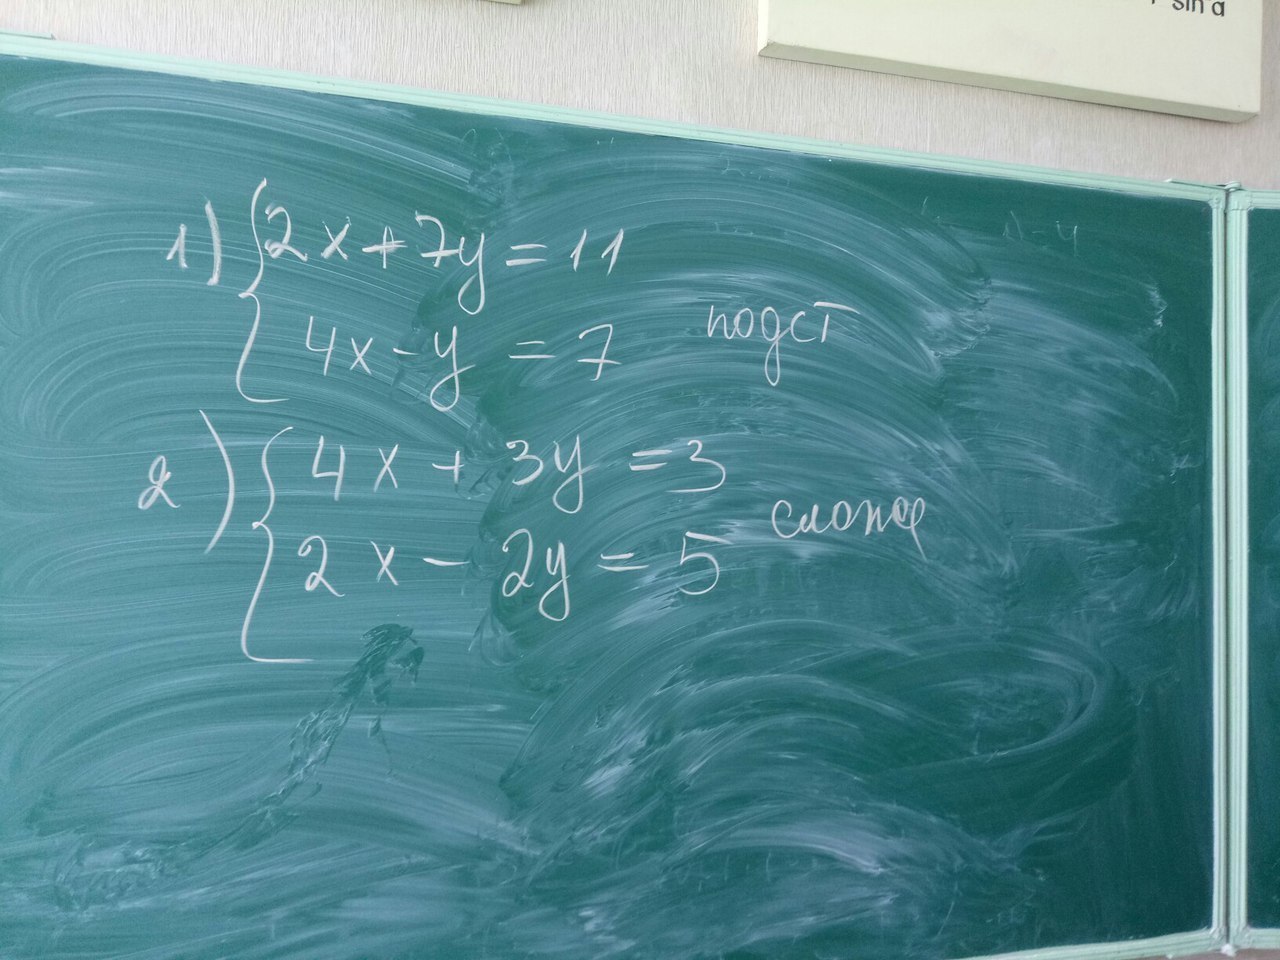 sin α
1) { 2x + 7y = 11
4x - y = 7 подст
2) { 4x + 3y = 3
2x - 2y = 5 слож